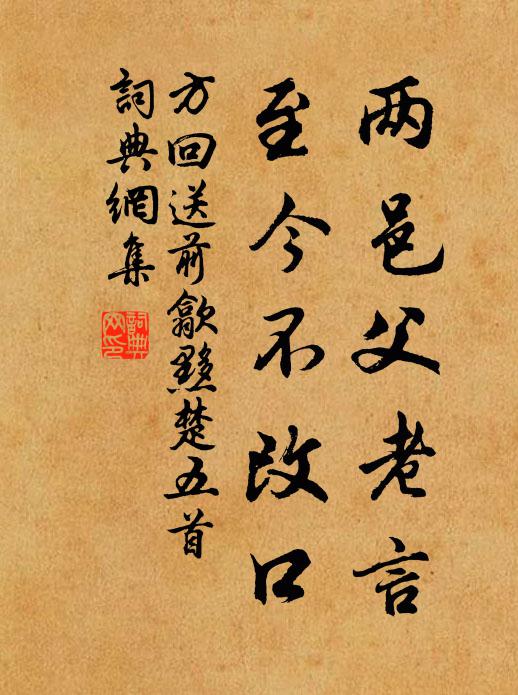 两邑父老言
至今不改口
方回送前歙黟楚五首
詞典網集
詞典
网印